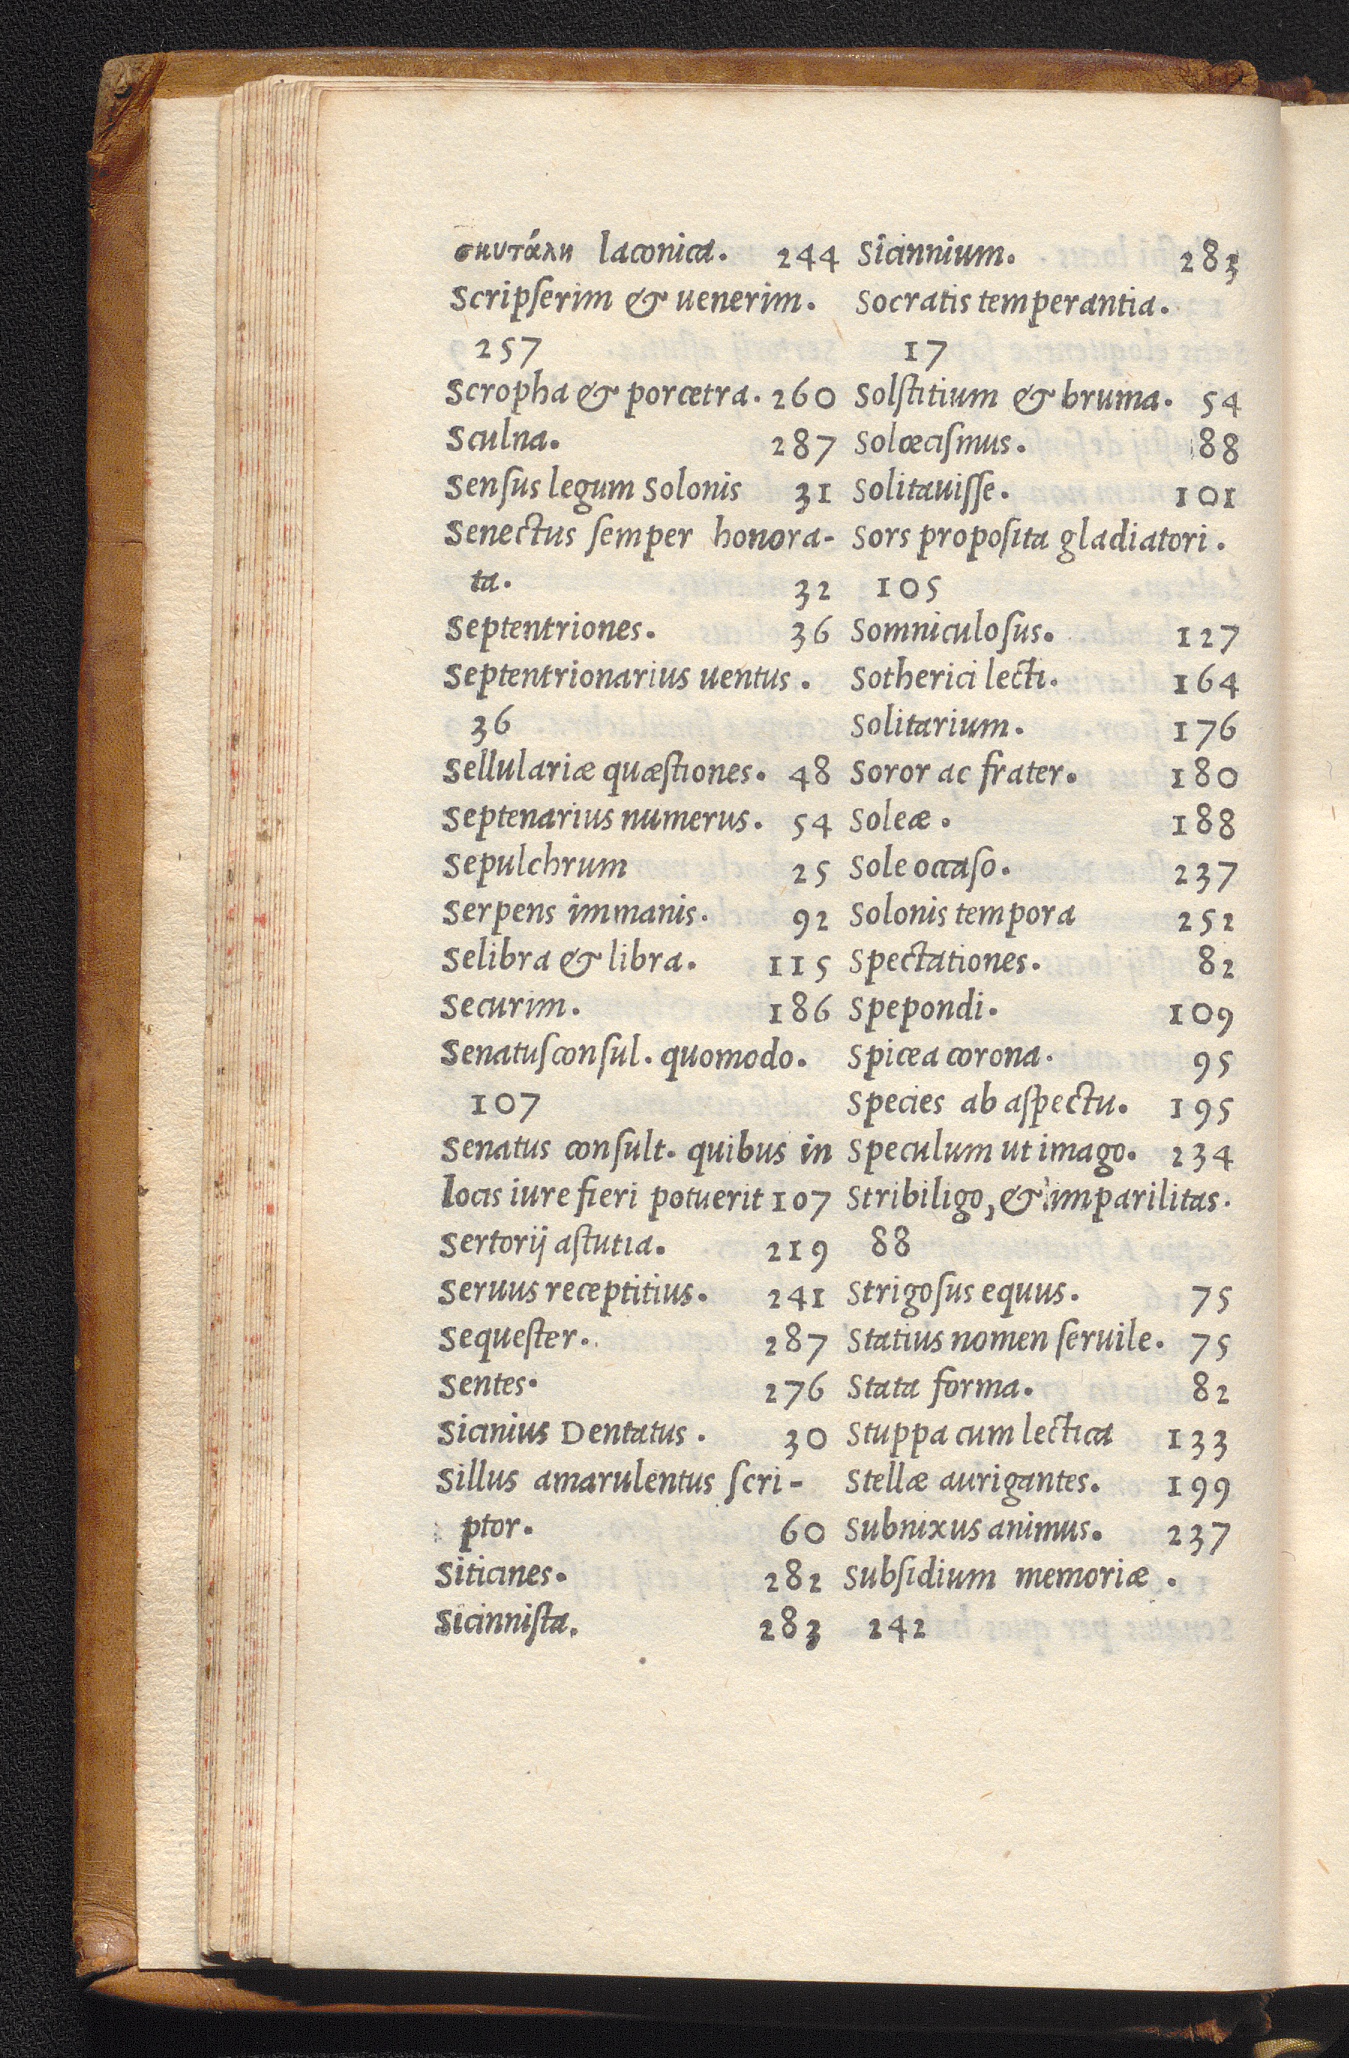 σκυτάλη laconica. 244
Scripſerim & uenerim.
257
Scropha & porcetra. 260
Sculna. 287
Senſus legum Solonis 31
Senectus ſemper honora-
ta. 32
Septentriones. 36
Septentrionarius uentus.
36
Sellulariæ quæſtiones. 48
Septenarius numerus. 54
Sepulchrum 25
Serpens immanis. 92
Selibra & libra. 115
Securim. 186
Senatuſconſul. quomodo.
107
Senatus conſult. quibus in
locis iure fieri potuerit 107
Sertorij aſtutia. 219
Seruus receptitius. 241
Sequeſter. 287
Sentes. 276
Sicinius Dentatus. 30
Sillus amarulentus ſcri-
ptor. 60
Siticines. 282
Sicinniſta. 283
Sicinnium. 283
Socratis temperantia.
17
Solſtitium & bruma. 54
Solœciſmus. 88
Solitauiſſe. 101
Sors propoſita gladiatori.
105
Somniculoſus. 127
Sotherici lecti. 164
Solitarium. 176
Soror ac frater. 180
Soleæ. 188
Sole occaſo. 237
Solonis tempora 252
Spectationes. 82
Spepondi. 109
Spicea corona. 95
Species ab aſpectu. 195
Speculum ut imago. 234
Stribiligo, & imparilitas.
88
Strigoſus equus. 75
Statius nomen ſeruile. 75
Stata forma. 82
Stuppa cum lectica 133
Stellæ aurigantes. 199
Subnixus animus. 237
Subſidium memoriæ.
242